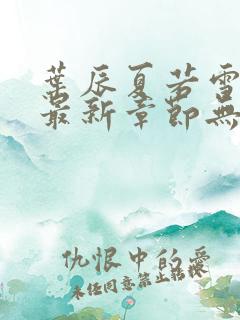 葉辰夏若雪
最新章節無
仇恨中的愛
未任同意禁止转摸